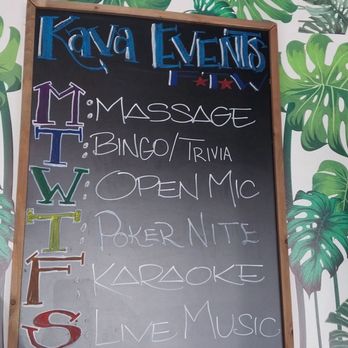 Kava Events
F★T★W
M: Massage
T: Bingo/Trivia
W: Open Mic
T: Poker Nite
F: Karaoke
S: Live Music